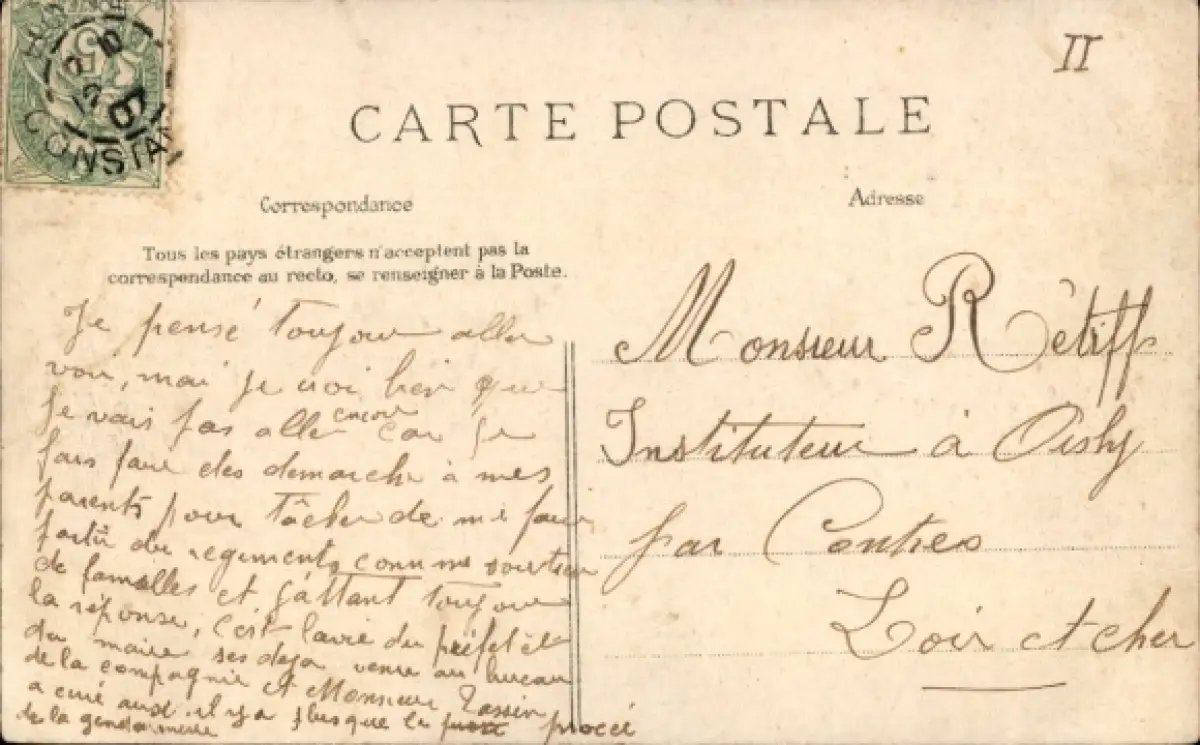 II
CARTE POSTALE
CONSTA
Correspondance
Tous les pays étrangers n'acceptent pas la
correspondance au recto, se renseigner à la Poste.
Je pensé toujour aller
voir, mai je croi bien que
je vais pas aller encore car je
fais faire des demarche à mes
parents pour tâcher de me faire
partir du regiments comme soutien
de familles et j'attant toujour
la réponse, c'est l'avie du préfet et
du maire ses deja venu au bureau
de la compagnie et Monsieur Tassin
a ecrie aussi. il y a plus que le procé
de la gendarmerie
Adresse
Monsieur Rétiff
Instituteur à Oisly
par Contres
Loir et cher